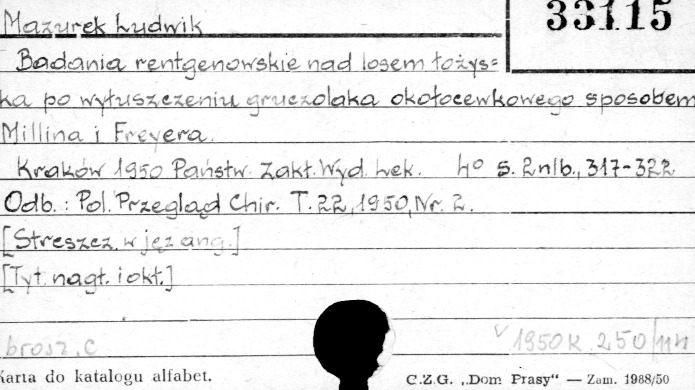 33115
Mazurek Ludwik
Badania rentgenowskie nad losem łożys=
ka po wyłuszczeniu gruczolaka okołocewkowego sposobem
Millina i Freyera.
Kraków 1950 Państw. Zakł. Wyd. Lek. 4° s. 2nlb., 317-322
Odb.: Pol. Przegląd Chir. T. 22, 1950, Nr. 2.
[Streszcz. w jęz ang.]
[Tyt. nagł. i okł.]
brosz. c
1950 K. 250/nn
Karta do katalogu alfabet.
C.Z.G. „Dom Prasy“ — Zam. 1968/50